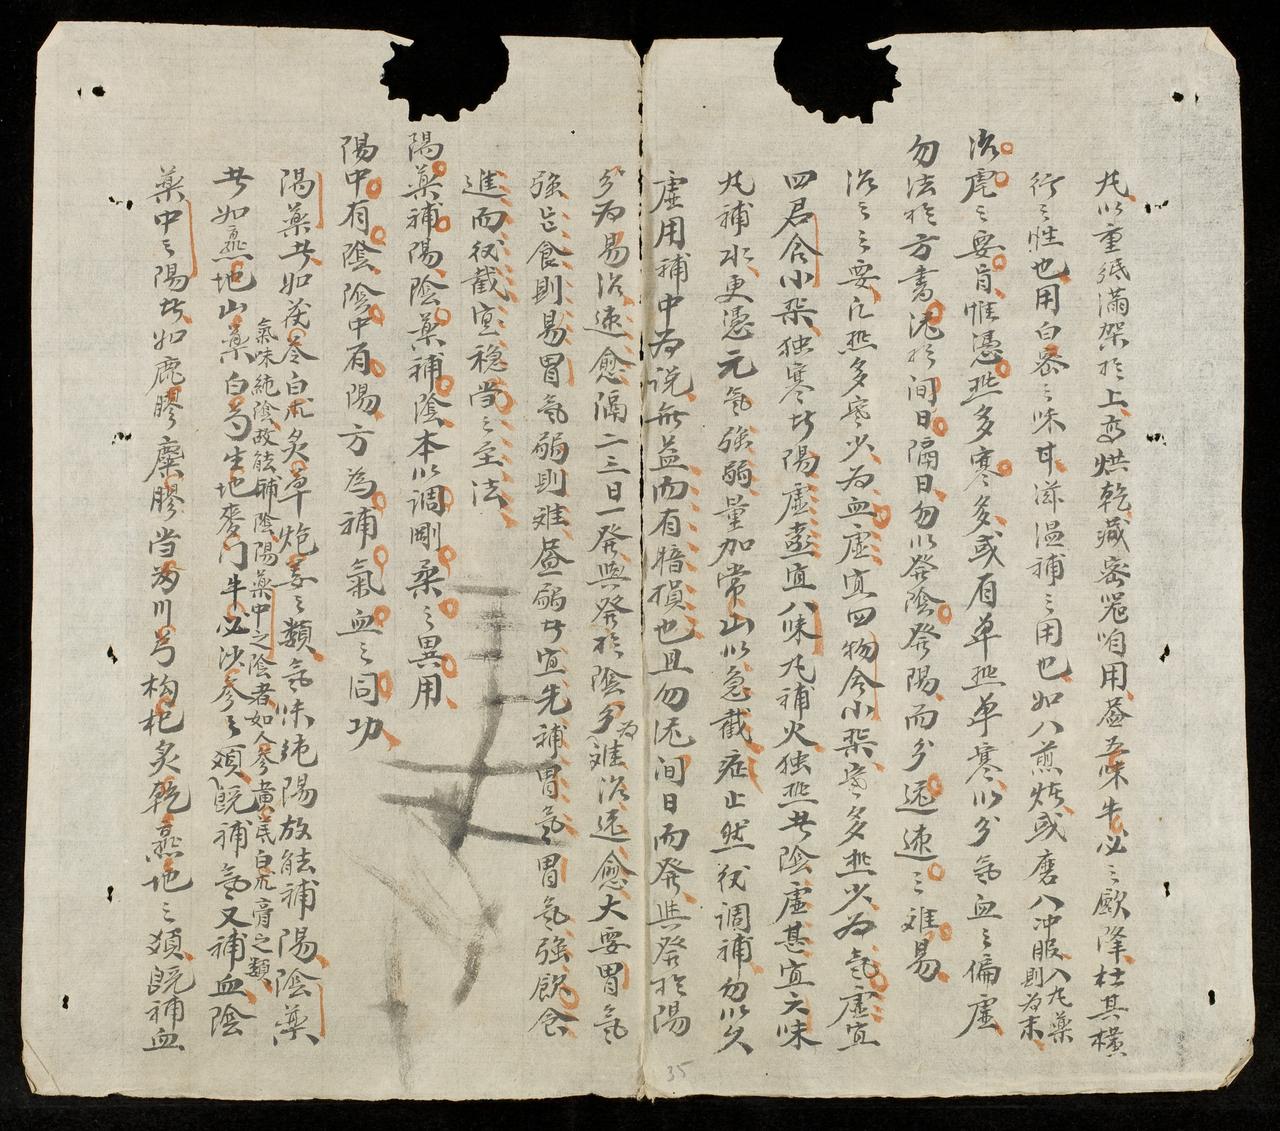 九以重紙滿架於上高烘乾藏密器咱用蓋五味牛必之歐降杜其橫
行之性也用白蜜之味甘滋温補之用也如八煎炷或磨八冲服則為末入九藥
治瘧之要旨惟憑热多寒多或有单热单寒以分氣血之偏虛
勿法於方書泥於间日隔日勿以発陰発陽而分遲速之难易
治之之要凡热多寒少为血虛宜四物合小柴寒多热少为氣虛宜
四君合小柴独寒者陽虛甚宜八味丸補火独热者陰虛甚宜六味
丸補水更憑元氣強弱量加常山以急截症止然後調補勿以久
虛用補中为说無益而有暗損也且勿泥间日而発與発於陽
分为易治速愈隔二三日一発與発於陰分为难治迟愈大要胃氣
強旨食則易胃氣弱則难蓋弱者宜先補胃氣胃氣強飲食
進而後截宜稳當之至法
陽藥補陽陰藥補陰本以調剛柔之異用
陽中有陰陰中有陽方為補氣血之同功
陽藥者如茂参白朮炙草炮姜之類氣味純陽故能補陽陰藥
者如熟地山藥白芍生地麥门牛必沙参之類氣味純陰故能補陰陽藥中之陰者如人參黄芪白朮膏之類既補氣又補血陰
藥中之陽者如鹿膠麋膠当歸川芎枸杞炙乾熟地之類既補血
35